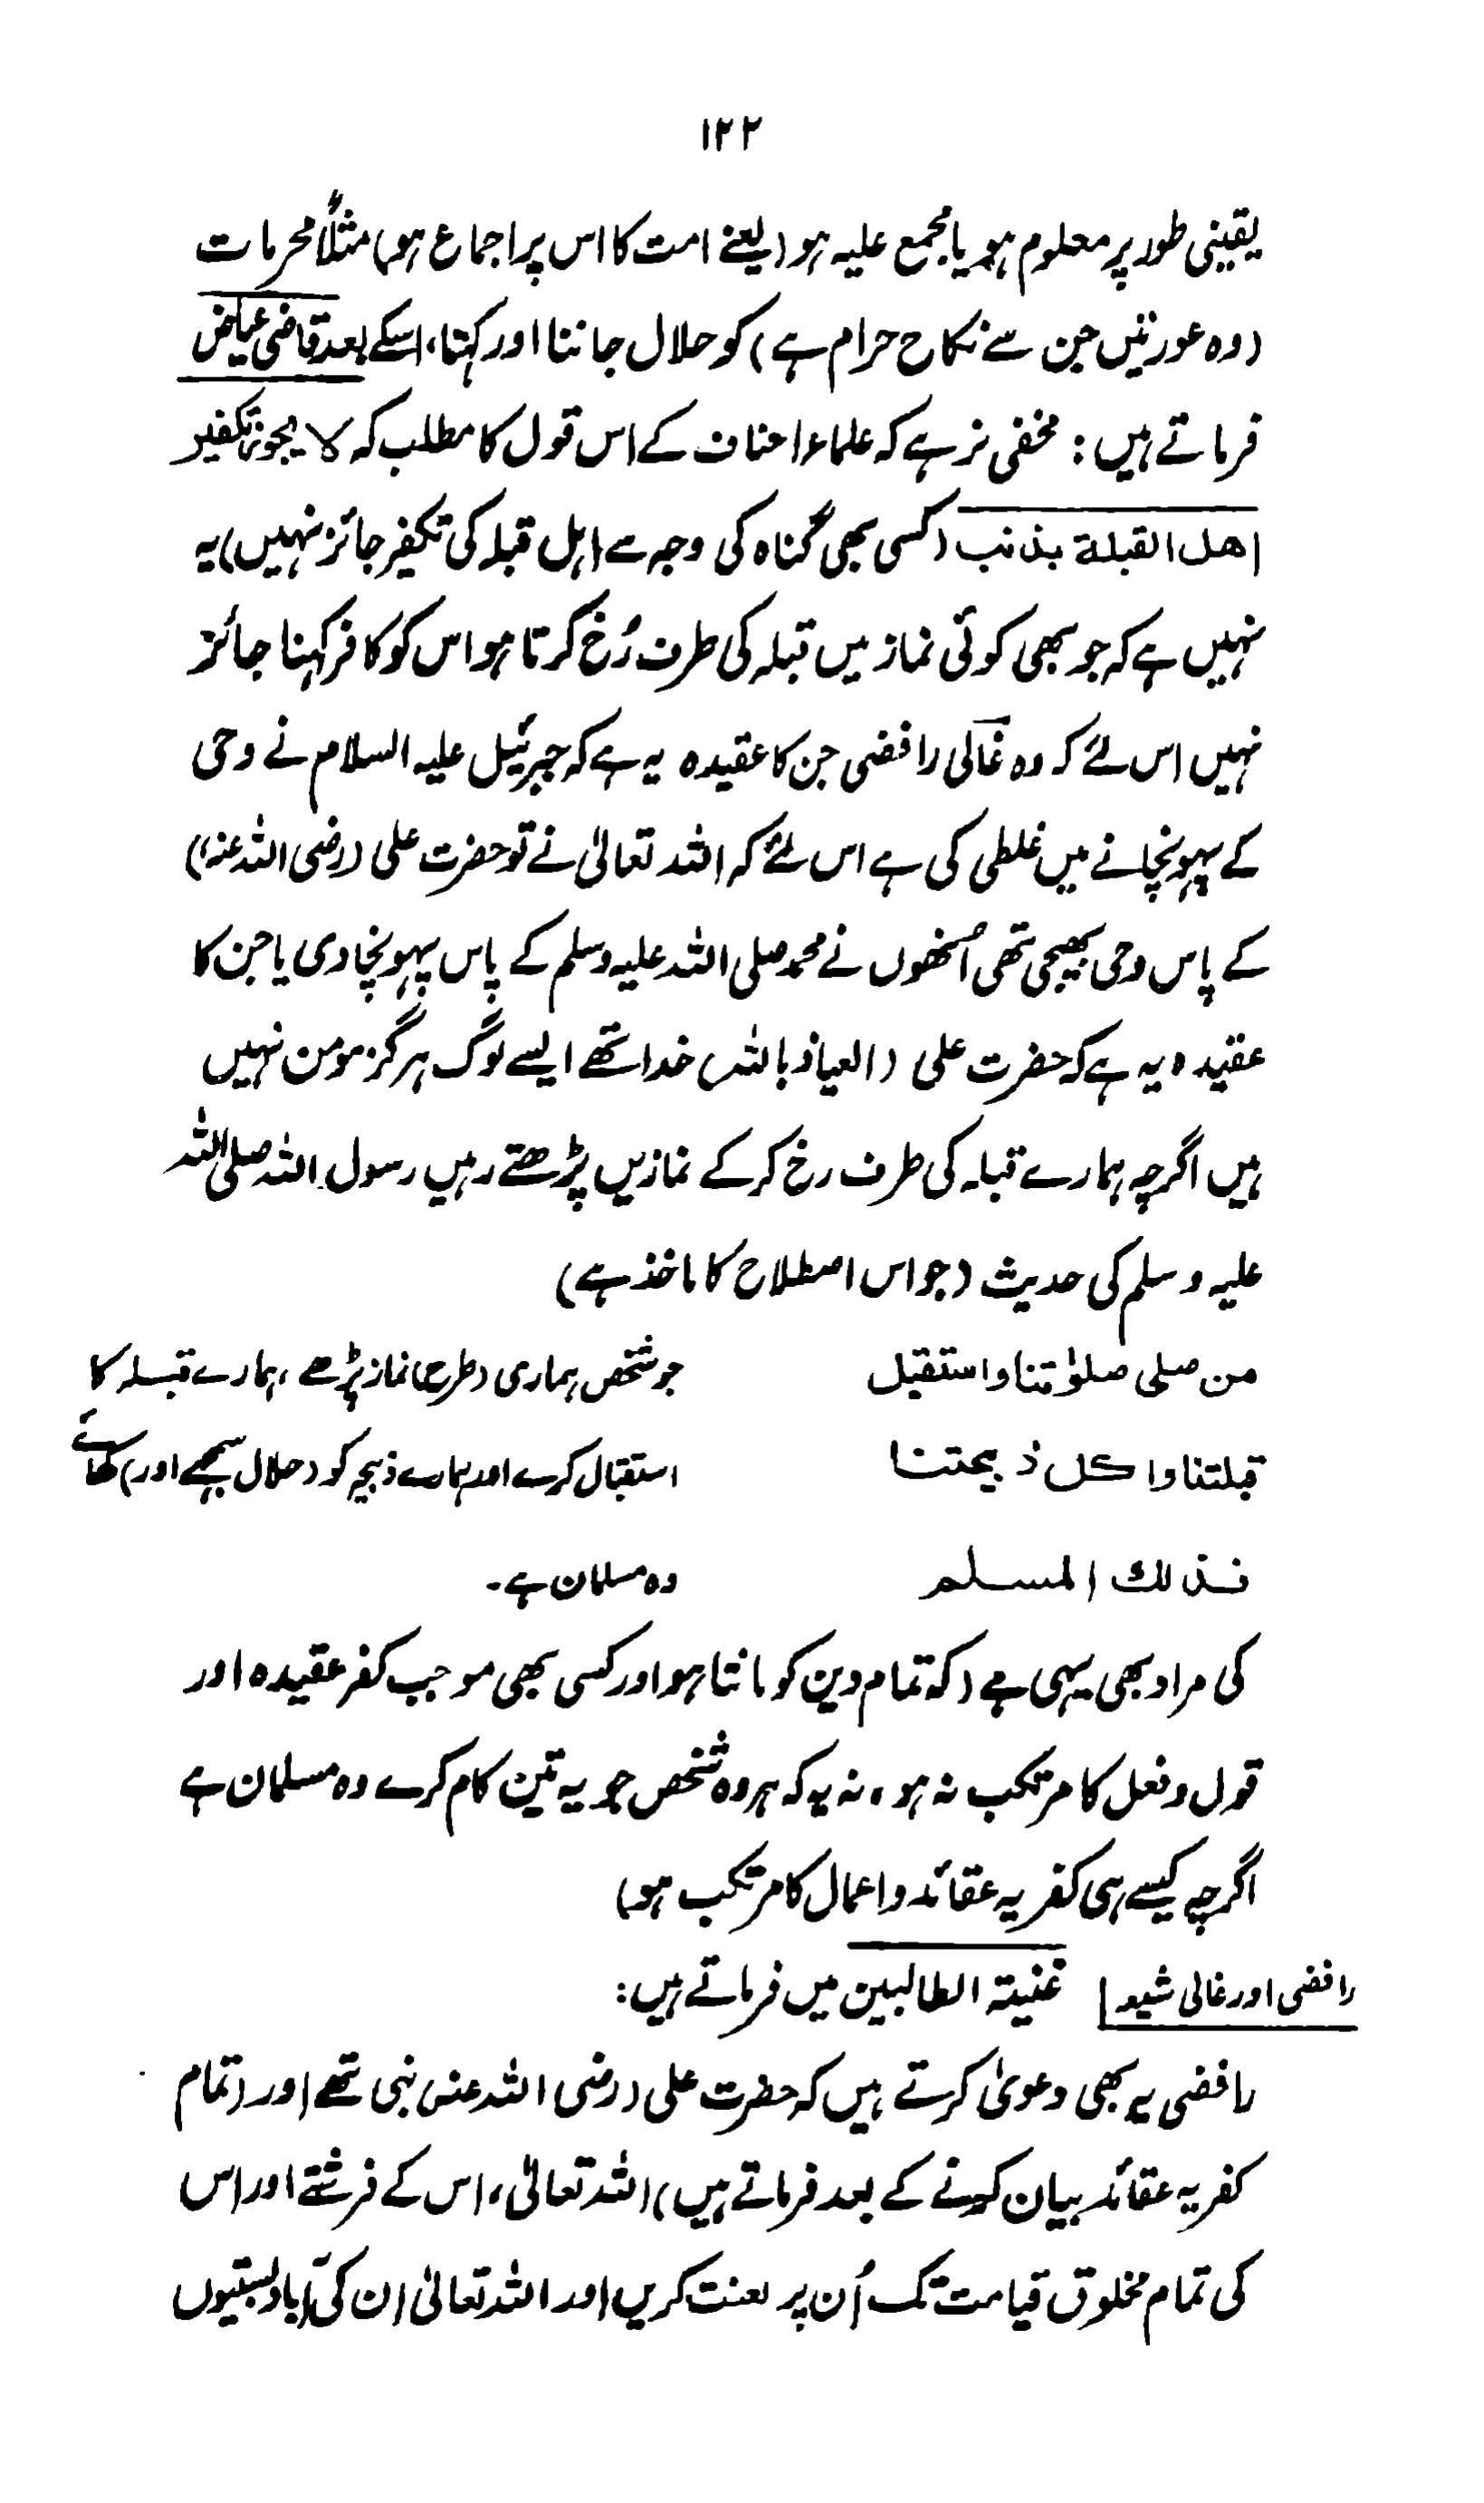 ۱۲۲
یقینی طور پر معلوم ہو یا مجمع علیہ ہو (یعنے امت کا اس پر اجماع ہو) مثلاً محرمات
(وہ عورتیں جن سے نکاح حرام ہے) کو حلال جاننا اور کہنا، اسکے بعد قاضی عیاض
فرماتے ہیں: مخفی نہ رہے کہ علماء احناف کے اس قول کا مطلب کہ لا یجوز تکفیر
اھل القبلة بذنب (کسی بھی گناہ کی وجہ سے اہل قبلہ کی تکفیر جائز نہیں) یہ
نہیں ہے کہ جو بھی کوئی نماز میں قبلہ کی طرف رُخ کرتا ہو اس کو کافر کہنا جائز
نہیں اس لئے کہ وہ غالی رافضی جن کا عقیدہ یہ ہے کہ جبرئیل علیہ السلام نے وحی
کے پہونچانے میں غلطی کی ہے اس لئے کہ اللہ تعالیٰ نے تو حضرت علی (رضی اللہ عنہ)
کے پاس وحی بھیجی تھی اُنھوں نے محمد صلی اللہ علیہ وسلم کے پاس پہونچا دی یا جن کا
عقیدہ یہ ہے کہ حضرت علی (العیاذ باللہ) خدا تھے ایسے لوگ ہرگز مومن نہیں
ہیں اگرچہ ہمارے قبلہ کی طرف رخ کر کے نمازیں پڑھتے رہیں رسول اللہ صلی اللہ
علیہ وسلم کی حدیث (جو اس اصطلاح کا ماخذ ہے)
من صلی صلوٰتنا واستقبل جو شخص ہماری (طرح) نماز پڑھے، ہمارے قبلہ کا
قبلتنا واکل ذبیحتنا استقبال کرے اور ہمارے ذبیحہ کو (حلال سمجھے اور) کھائے
فذلك المسلم وہ مسلمان ہے۔
کی مراد بھی یہی ہے (کہ تمام دین کو مانتا ہو اور کسی بھی موجب کفر عقیدہ اور
قول و فعل کا مرتکب نہ ہو، نہ یہ کہ ہر وہ شخص جو یہ تین کام کرے وہ مسلمان ہے
اگرچہ کیسے ہی کفریہ عقائد و اعمال کا مرتکب ہو)
رافضی اور غالی شیعہ غنیۃ الطالبین میں فرماتے ہیں:
رافضی یہ بھی دعویٰ کرتے ہیں کہ حضرت علی (رضی اللہ عنہ) نبی تھے اور (تمام
کفریہ عقائد بیان کرنے کے بعد فرماتے ہیں) اللہ تعالیٰ، اس کے فرشتے اور اس
کی تمام مخلوق قیامت تک اُن پر لعنت کریں اور اللہ تعالیٰ ان کی آباد بستیوں